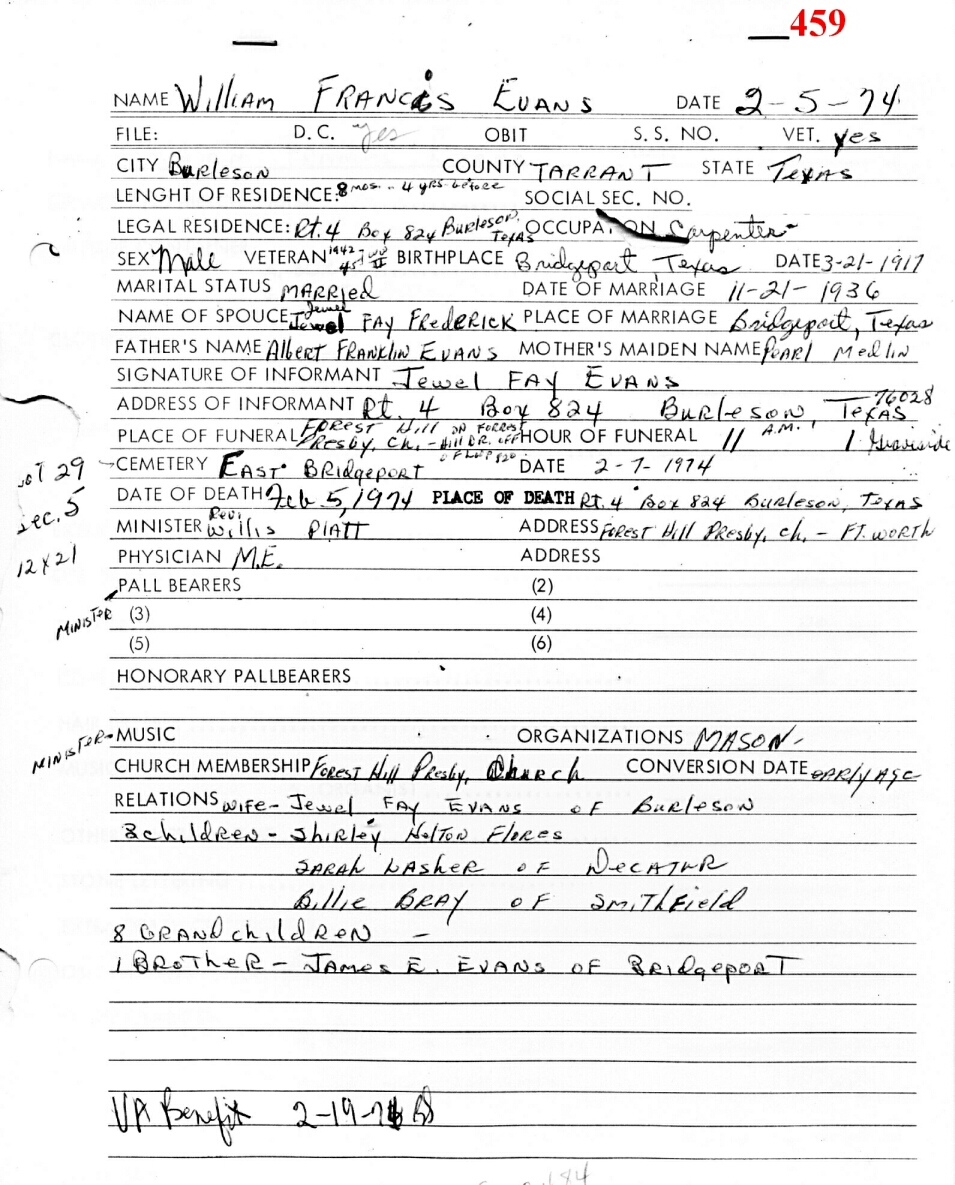 459
NAME William Francis Evans DATE 2-5-74
FILE: D.C. yes OBIT S.S. NO. VET. yes
CITY Burleson COUNTY TARRANT STATE Texas
LENGHT OF RESIDENCE: 8 mos. - 4 yrs before SOCIAL SEC. NO.
LEGAL RESIDENCE: Rt. 4 Box 824 Burleson, Texas OCCUPATION Carpenter
SEX Male VETERAN 1942 45 II BIRTHPLACE Bridgeport, Texas DATE 3-21-1917
MARITAL STATUS MARRIED DATE OF MARRIAGE 11-21-1936
NAME OF SPOUCE Jewel Jewel FAY FREDERICK PLACE OF MARRIAGE Bridgeport, Texas
FATHER'S NAME Albert FRANKLIN EVANS MOTHER'S MAIDEN NAME Pearl Medlin
SIGNATURE OF INFORMANT Jewel FAY EVANS
ADDRESS OF INFORMANT Rt. 4 Box 824 Burleson TEXAS 76028
PLACE OF FUNERAL FOREST Hill Presby. Ch. - ON FORREST Hill DR. OFF OF LOOP 820 HOUR OF FUNERAL 11 A.M. Graveside
LOT 29 CEMETERY EAST BRIDGEPORT DATE 2-7-1974
Sec. 5 DATE OF DEATH Feb 5, 1974 PLACE OF DEATH Rt. 4 Box 824 Burleson, Texas
MINISTER Rev. Willis PIATT ADDRESS FOREST Hill Presby. Ch. - FT. WORTH
12 X 21 PHYSICIAN M.E. ADDRESS
PALL BEARERS (2)
MINISTER (3) (4)
(5) (6)
HONORARY PALLBEARERS
MINISTER - MUSIC ORGANIZATIONS MASON -
CHURCH MEMBERSHIP Forest Hill Presby. Church CONVERSION DATE EARLY AGE
RELATIONS Wife - Jewel FAY EVANS OF Burleson
3 children - Shirley Holton Flores
SARAH LASHER OF DECATUR
Billie BRAY OF SMITHField
8 GRANDchildREN -
1 BROTHER - JAMES E. EVANS OF BRIDgePORT
VA Benefit 2-19-74